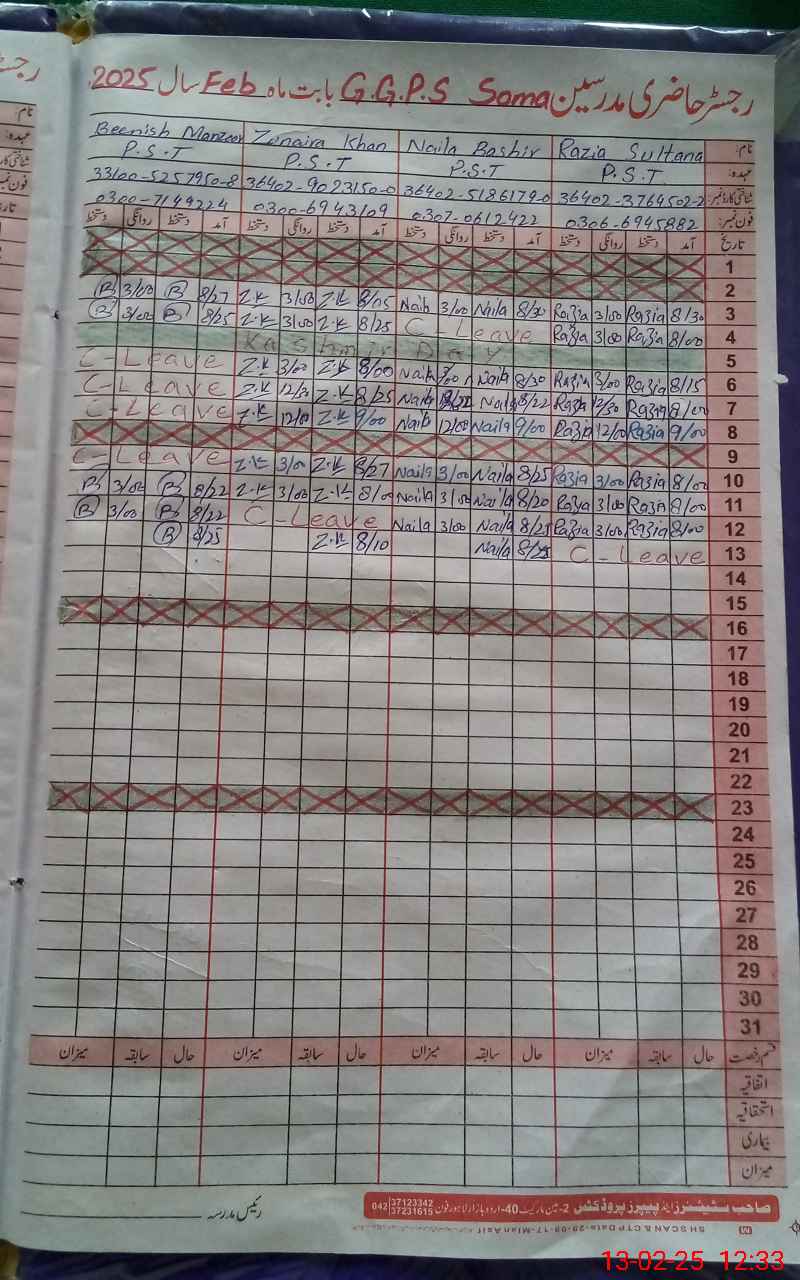 رجسٹر حاضری مدرسین G.G.P.S Soma بابت ماہ Feb سال 2025
نام: Razia Sultana Naila Bashir Zunaira Khan Beenish Manzoor
عہدہ: P.S.T. P.S.T P.S.T P.S.T
شناختی کارڈ نمبر: 36402-3764502-2 36402-5186179-0 36402-9023150-0 33100-5257950-8
فون نمبر: 0306-6945882 0307-0612422 0300-6943109 0300-7149224
تاریخ آمد دستخط روانگی دستخط آمد دستخط روانگی دستخط آمد دستخط روانگی دستخط آمد دستخط روانگی دستخط
1
2
3 8/30 Razia 3/00 Razia 8/30 Naila 3/00 Naila 8/05 Z.K 3/00 Z.K 8/27 B 3/00 B
4 8/00 Razia 3/00 Razia C-Leave 8/25 Z.K 3/00 Z.K 8/25 B 3/00 B
5 Kashmir Day
6 8/15 Razia 3/00 Razia 8/30 Naila 3/00 Naila 8/00 Z.K 3/00 Z.K C-Leave
7 Razia 12/30 Razia 8/22 Naila Naila 8/25 Z.K 12/30 Z.K C-Leave
8 9/00 Razia 12/00 Razia 9/00 Naila 12/00 Naila 9/00 Z.K 12/00 Z.K C-Leave
9
10 8/00 Razia 3/00 Razia 8/25 Naila 3/00 Naila 8/27 Z.K 3/00 Z.K C-Leave
11 8/00 Razia 3/00 Razia 8/20 Naila 3/00 Naila 8/00 Z.K 3/00 Z.K 8/22 B 3/00 B
12 8/00 Razia 3/00 Razia 8/25 Naila 3/00 Naila C-Leave 8/22 B 3/00 B
13 C-Leave 8/25 Naila 8/10 Z.K 8/25 B
14
15
16
17
18
19
20
21
22
23
24
25
26
27
28
29
30
31
قسم رخصت حال سابقہ میزان حال سابقہ میزان حال سابقہ میزان حال سابقہ میزان
اتفاقیہ
استحقاقیہ
بیماری
میزان
رئیس مدرسہ
صاحب سٹیشنرز اینڈ پیپرز پروڈکٹس 2-مین مارکیٹ 40-اردو بازار لاہور فون 042 37123342 37231615
SH SCAN & CTP Date-29-09-17-Mian Asif
13-02-25 12:33